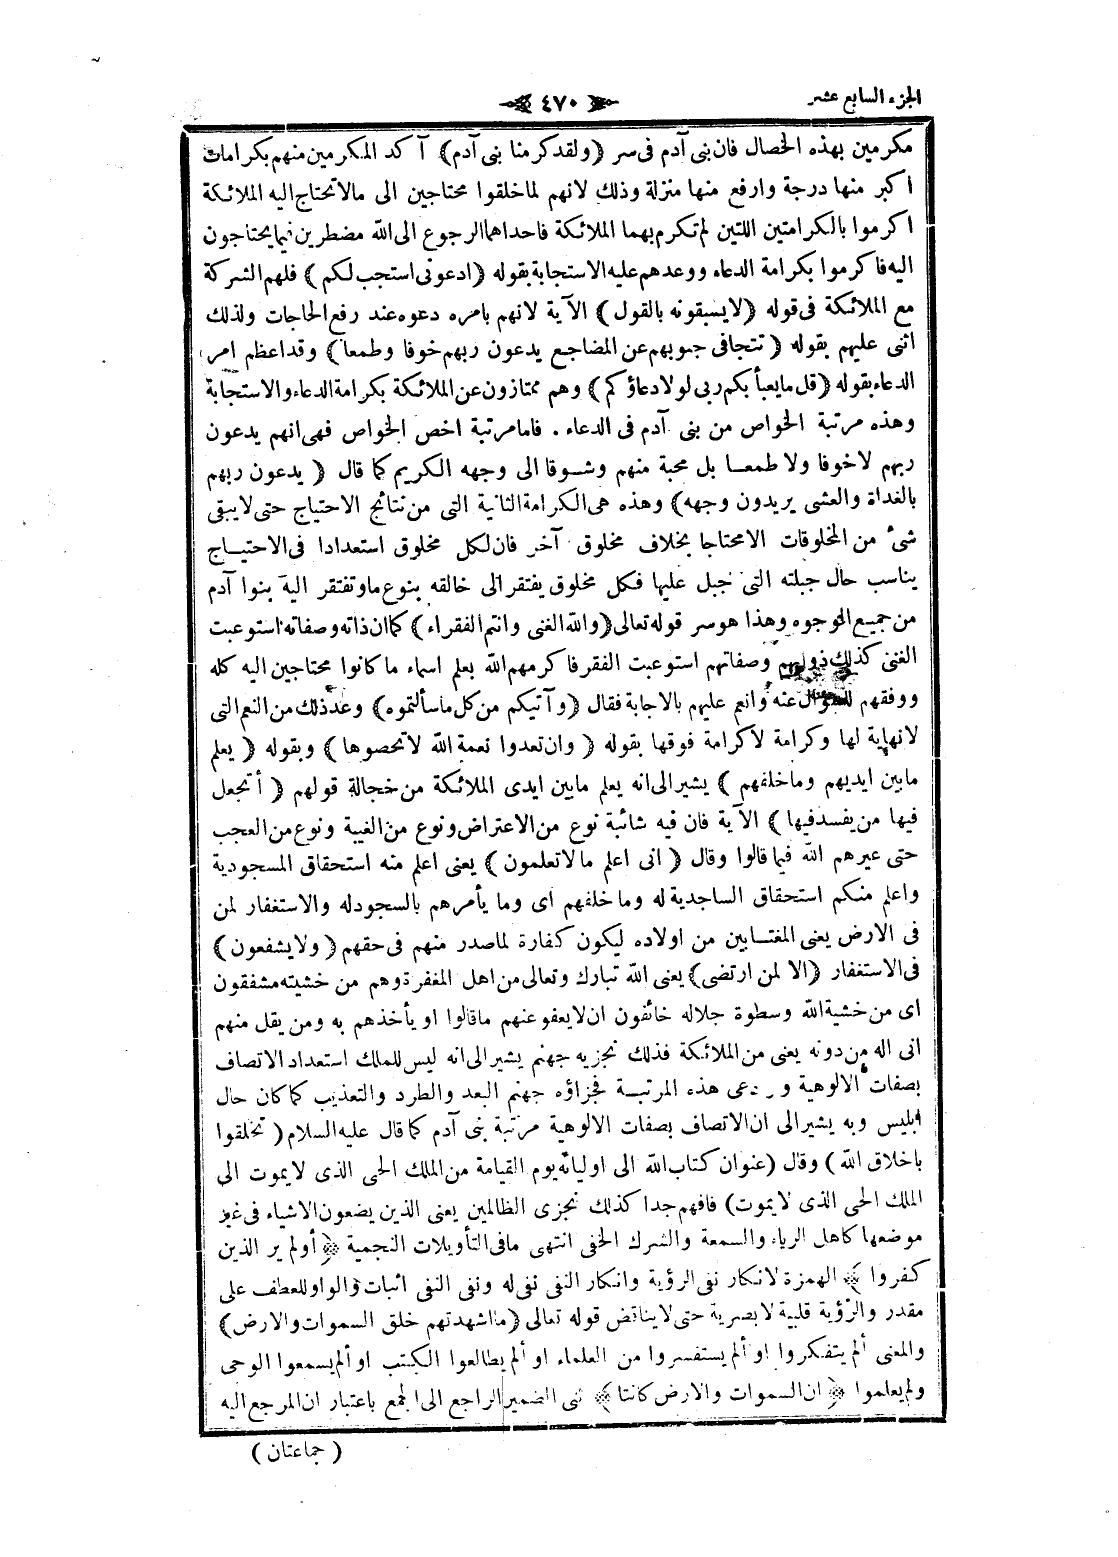 الجزء السابع عشر
٤٧٠
مكرمين بهذه الخصال فان بنى آدم فى سر (ولقد كرمنا بنى آدم) آكد المكرمين منهم بكرامات
اكبر منها درجة وارفع منها منزلة وذلك لانهم لما خلقوا محتاجين الى مالا تحتاج اليه الملائكة
اكرموا بالكرامتين اللتين لم تكرم بهما الملائكة فاحداهما الرجوع الى الله مضطرين فيما يحتاجون
اليه فاكرموا بكرامة الدعاء ووعدهم عليه الاستجابة بقوله (ادعونى استجب لكم) فلهم الشركة
مع الملائكة فى قوله (لا يسبقونه بالقول) الآية لانهم بامره دعوه عند رفع الحاجات ولذلك
اثنى عليهم بقوله (تتجافى جنوبهم عن المضاجع يدعون ربهم خوفا وطمعا) وقد اعظم امر
الدعاء بقوله (قل ما يعبأ بكم ربى لولا دعاؤكم) وهم ممتازون عن الملائكة بكرامة الدعاء والاستجابة
وهذه مرتبة الخواص من بنى آدم فى الدعاء . فاما مرتبة اخص الخواص فهى انهم يدعون
ربهم لا خوفا ولا طمعا بل محبة منهم وشوقا الى وجهه الكريم كما قال (يدعون ربهم
بالغداة والعشى يريدون وجهه) وهذه هى الكرامة الثانية التى من نتائج الاحتياج حتى لا يبقى
شئ من المخلوقات الا محتاجا بخلاف مخلوق آخر فان لكل مخلوق استعدادا فى الاحتياج
يناسب حال جبلته التى جبل عليها فكل مخلوق يفتقر الى خالقه بنوع ما وتفتقر اليه بنوا آدم
من جميع الوجوه وهذا هو سر قوله تعالى (والله الغنى وانتم الفقراء) كما ان ذاته وصفاته استوعبت
الغنى كذلك ذواتهم وصفاتهم استوعبت الفقر فاكرمهم الله بعلم اسماء ما كانوا محتاجين اليه كله
ووفقهم للسؤال عنه وانعم عليهم بالاجابة فقال (وآتيكم من كل ما سألتموه) وعد ذلك من النعم التى
لا نهاية لها وكرامة لا كرامة فوقها بقوله (وان تعدوا نعمة الله لا تحصوها) وبقوله (يعلم
ما بين ايديهم وما خلفهم) يشير الى انه يعلم ما بين ايدى الملائكة من خجالة قولهم (أتجعل
فيها من يفسد فيها) الآية فان فيه شائبة نوع من الاعتراض ونوع من الغيبة ونوع من العجب
حتى عيرهم الله فيما قالوا وقال (انى اعلم ما لا تعلمون) يعنى اعلم منه استحقاق المسجودية
واعلم منكم استحقاق الساجدية له وما خلفهم اى وما يأمرهم بالسجود له والاستغفار لمن
فى الارض يعنى المغتابين من اولاده ليكون كفارة لما صدر منهم فى حقهم (ولا يشفعون)
فى الاستغفار (الا لمن ارتضى) يعنى الله تبارك وتعالى من اهل المغفرة وهم من خشيته مشفقون
اى من خشية الله وسطوة جلاله خائفون ان لا يعفو عنهم ما قالوا او يأخذهم به ومن يقل منهم
انى اله من دونه يعنى من الملائكة فذلك نجزيه جهنم يشير الى انه ليس للملك استعداد الاتصاف
بصفات الالوهية و دعى هذه المرتبة فجزاؤه جهنم البعد والطرد والتعذيب كما كان حال
ابليس وبه يشير الى ان الاتصاف بصفات الالوهية مرتبة بنى آدم كما قال عليه السلام (تخلقوا
باخلاق الله) وقال (عنوان كتاب الله الى اوليائه يوم القيامة من الملك الحى الذى لا يموت الى
الملك الحى الذى لا يموت) فافهم جدا كذلك نجزى الظالمين يعنى الذين يضعون الاشياء فى غير
موضعها كاهل الرياء والسمعة والشرك الخفى انتهى ما فى التأويلات النجمية ﴿أولم ير الذين
كفروا﴾ الهمزة لانكار نفى الرؤية وانكار النفى نفى له ونفى النفى اثبات والواو للعطف على
مقدر والرؤية قلبية لا بصرية حتى لا يناقض قوله تعالى (ما اشهدتهم خلق السموات والارض)
والمعنى ألم يتفكروا او ألم يستفسروا من العلماء او ألم يطالعوا الكتب او ألم يسمعوا الوحى
ولم يعلموا ﴿ان السموات والارض كانتا﴾ ثنى الضمير الراجع الى الجمع باعتبار ان المرجع اليه
(جماعتان)